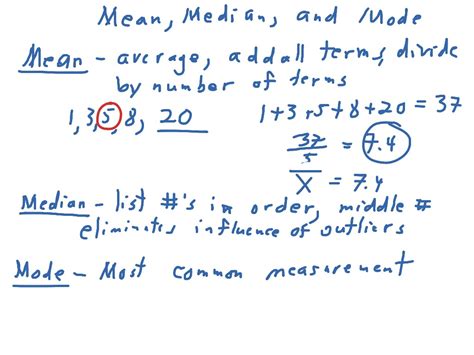 Mean, Median, and Mode
Mean - average, add all terms, divide
by number of terms
1, 3, 5, 8, 20 1+3+5+8+20 = 37
37/5 = 7.4
x̅ = 7.4
Median - list #'s in order, middle #
eliminates influence of outliers
Mode - Most common measurement